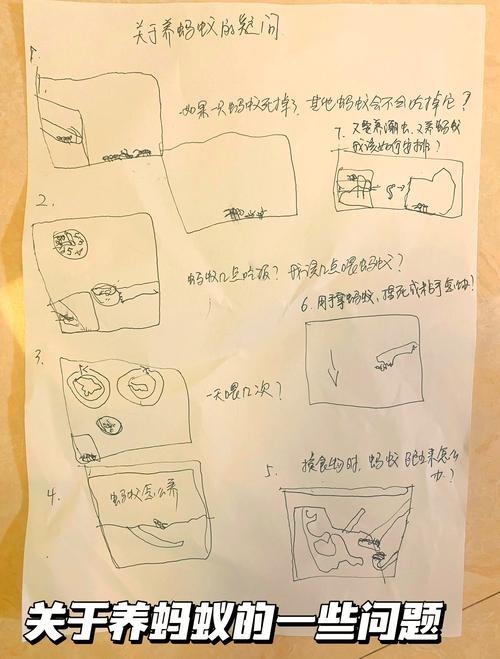 关于养蚂蚁的疑问
1.
如果一只蚂蚁死掉了,其他蚂蚁会不会吃掉它?
2.
蚂蚁几点吃饭?我该几点喂蚂蚁?
3.
一天喂几次?
4.
蚂蚁怎么养
5.
换食物时,蚂蚁跑出来怎么
办?
6.用手拿蚂蚁,捏死或粘手怎么办?
7.又要养潮虫,又养蚂蚁
我该如何安排?
关于养蚂蚁的一些问题